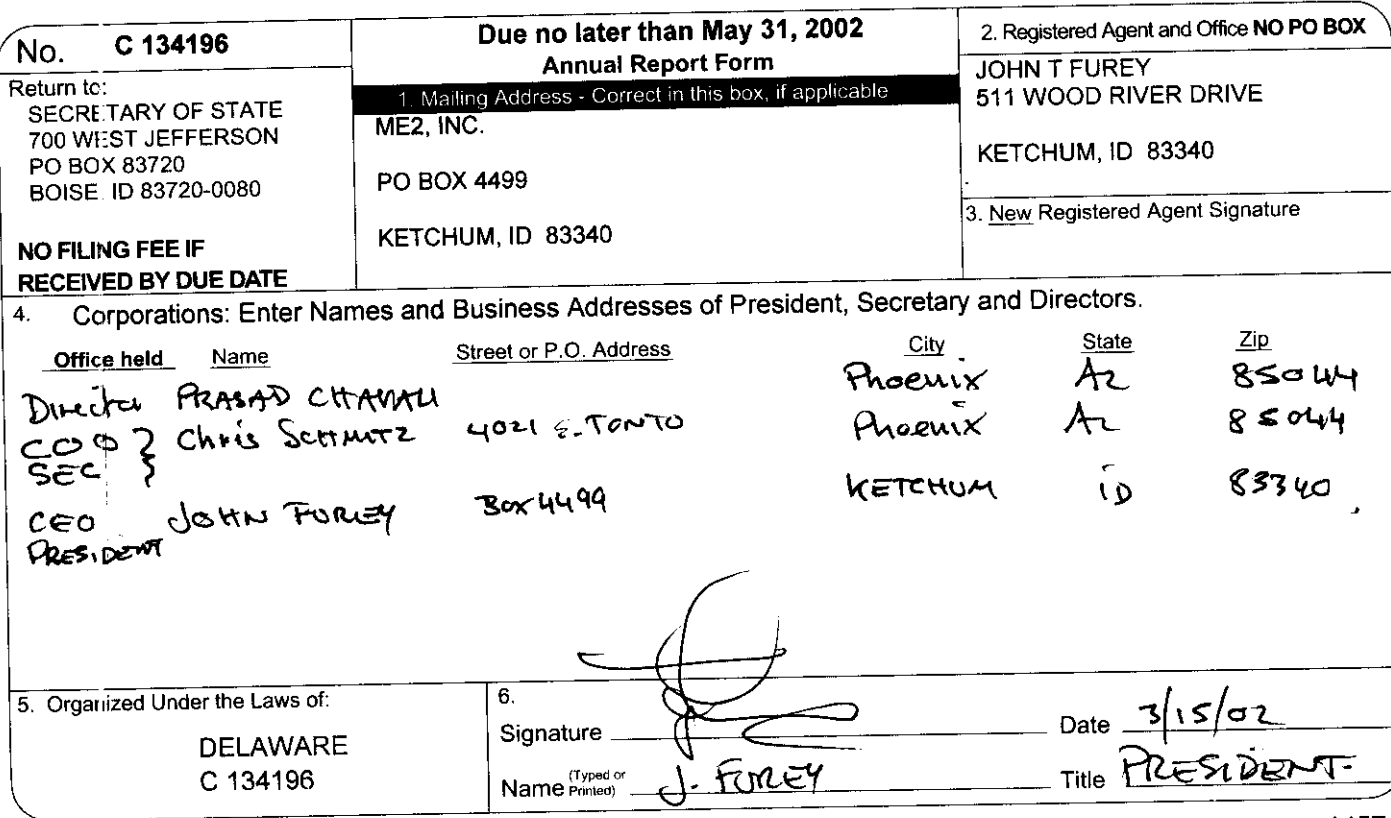 No. C 134196
Return to:
SECRETARY OF STATE
700 WEST JEFFERSON
PO BOX 83720
BOISE, ID 83720-0080
NO FILING FEE IF
RECEIVED BY DUE DATE
Due no later than May 31, 2002
Annual Report Form
1. Mailing Address - Correct in this box, if applicable
ME2, INC.
PO BOX 4499
KETCHUM, ID 83340
2. Registered Agent and Office NO PO BOX
JOHN T FUREY
511 WOOD RIVER DRIVE
KETCHUM, ID 83340
3. New Registered Agent Signature
4. Corporations: Enter Names and Business Addresses of President, Secretary and Directors.
Office held Name Street or P.O. Address City State Zip
Director PRASAD CHAVALI Phoenix AZ 85044
COO } Chris SCHMITZ 4021 E. TONTO Phoenix AZ 85044
SEC }
CEO JOHN FUREY Box 4499 KETCHUM iD 83340
PRESIDENT
5. Organized Under the Laws of:
DELAWARE
C 134196
6.
Signature Date 3/15/02
Name (Typed or Printed) J. FUREY Title PRESIDENT.